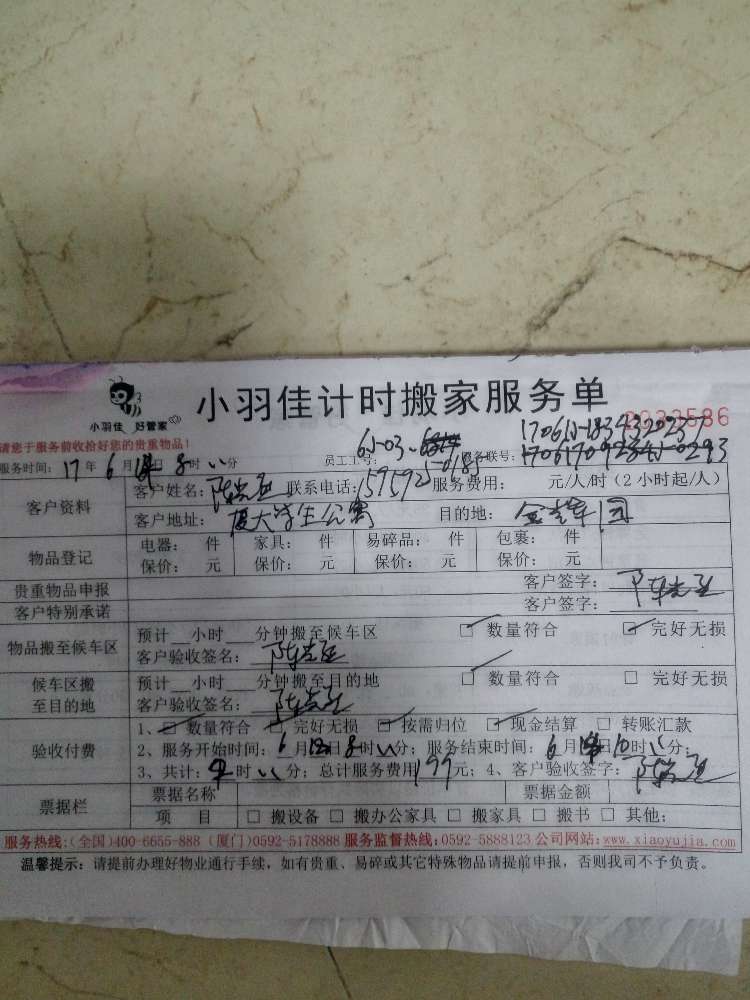 小羽佳 好管家
小羽佳计时搬家服务单
2033586
请您于服务前收拾好您的贵重物品!
服务时间: 17 年 6 月 日 8 时 分 员工工号: 服务联号:
客户资料 客户姓名: 陈先生 联系电话: 服务费用: 元/人/时(2小时起/人)
客户地址: 厦大学生公寓 目的地:
物品登记 电器: 件 家具: 件 易碎品: 件 包裹: 件
保价: 元 保价: 元 保价: 元 保价: 元
贵重物品申报 客户签字: 陈先生
客户特别承诺 客户签字:
物品搬至候车区 预计__小时__分钟搬至候车区 ☑ 数量符合 ☑ 完好无损
客户验收签名: 陈先生
候车区搬至目的地 预计__小时__分钟搬至目的地 ☑ 数量符合 □ 完好无损
客户验收签名: 陈先生
验收付费 1、☑ 数量符合 ☑ 完好无损 ☑ 按需归位 ☑ 现金结算 □ 转账汇款
2、服务开始时间: 6 月 日 8 时 分; 服务结束时间: 6 月 日 10 时 分;
3、共计: 时 分; 总计服务费用 199 元; 4、客户验收签字: 陈先生
票据栏 票据名称 票据金额
项 目 □ 搬设备 □ 搬办公家具 □ 搬家具 □ 搬书 □ 其他:
服务热线:(全国)400-6655-888 (厦门)0592-5178888 服务监督热线:0592-5888123 公司网站:www.xiaoyujia.com
温馨提示: 请提前办理好物业通行手续, 如有贵重、易碎或其它特殊物品请提前申报, 否则我司不予负责。